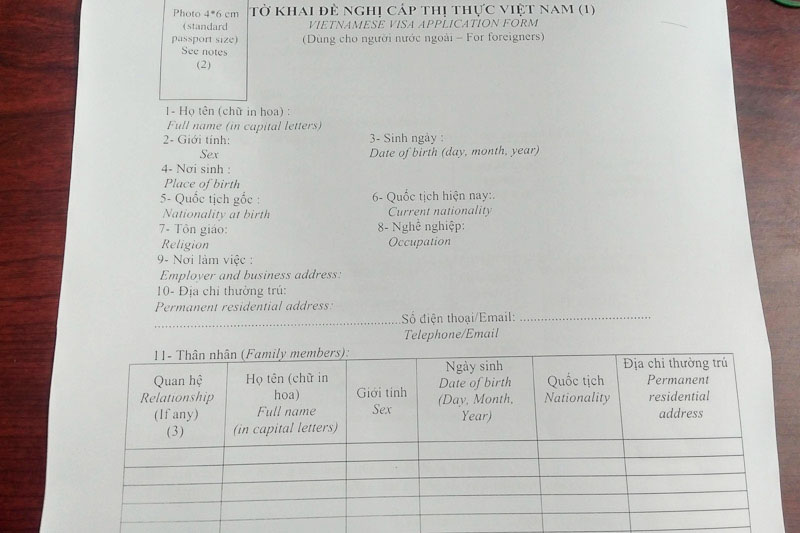 Photo 4*6 cm
(standard
passport size)
See notes
(2)
TỜ KHAI ĐỀ NGHỊ CẤP THỊ THỰC VIỆT NAM (1)
VIETNAMESE VISA APPLICATION FORM
(Dùng cho người nước ngoài – For foreigners)
1- Họ tên (chữ in hoa) :
Full name (in capital letters)
2- Giới tính:
Sex
3- Sinh ngày :
Date of birth (day, month, year)
4- Nơi sinh :
Place of birth
5- Quốc tịch gốc :
Nationality at birth
6- Quốc tịch hiện nay:.
Current nationality
7- Tôn giáo:
Religion
8- Nghề nghiệp:
Occupation
9- Nơi làm việc :
Employer and business address:
10- Địa chỉ thường trú:
Permanent residential address:
Số điện thoại/Email:
Telephone/Email
11- Thân nhân (Family members):
Quan hệ
Relationship
(If any)
(3)
Họ tên (chữ in
hoa)
Full name
(in capital letters)
Giới tính
Sex
Ngày sinh
Date of birth
(Day, Month,
Year)
Quốc tịch
Nationality
Địa chỉ thường trú
Permanent
residential
address